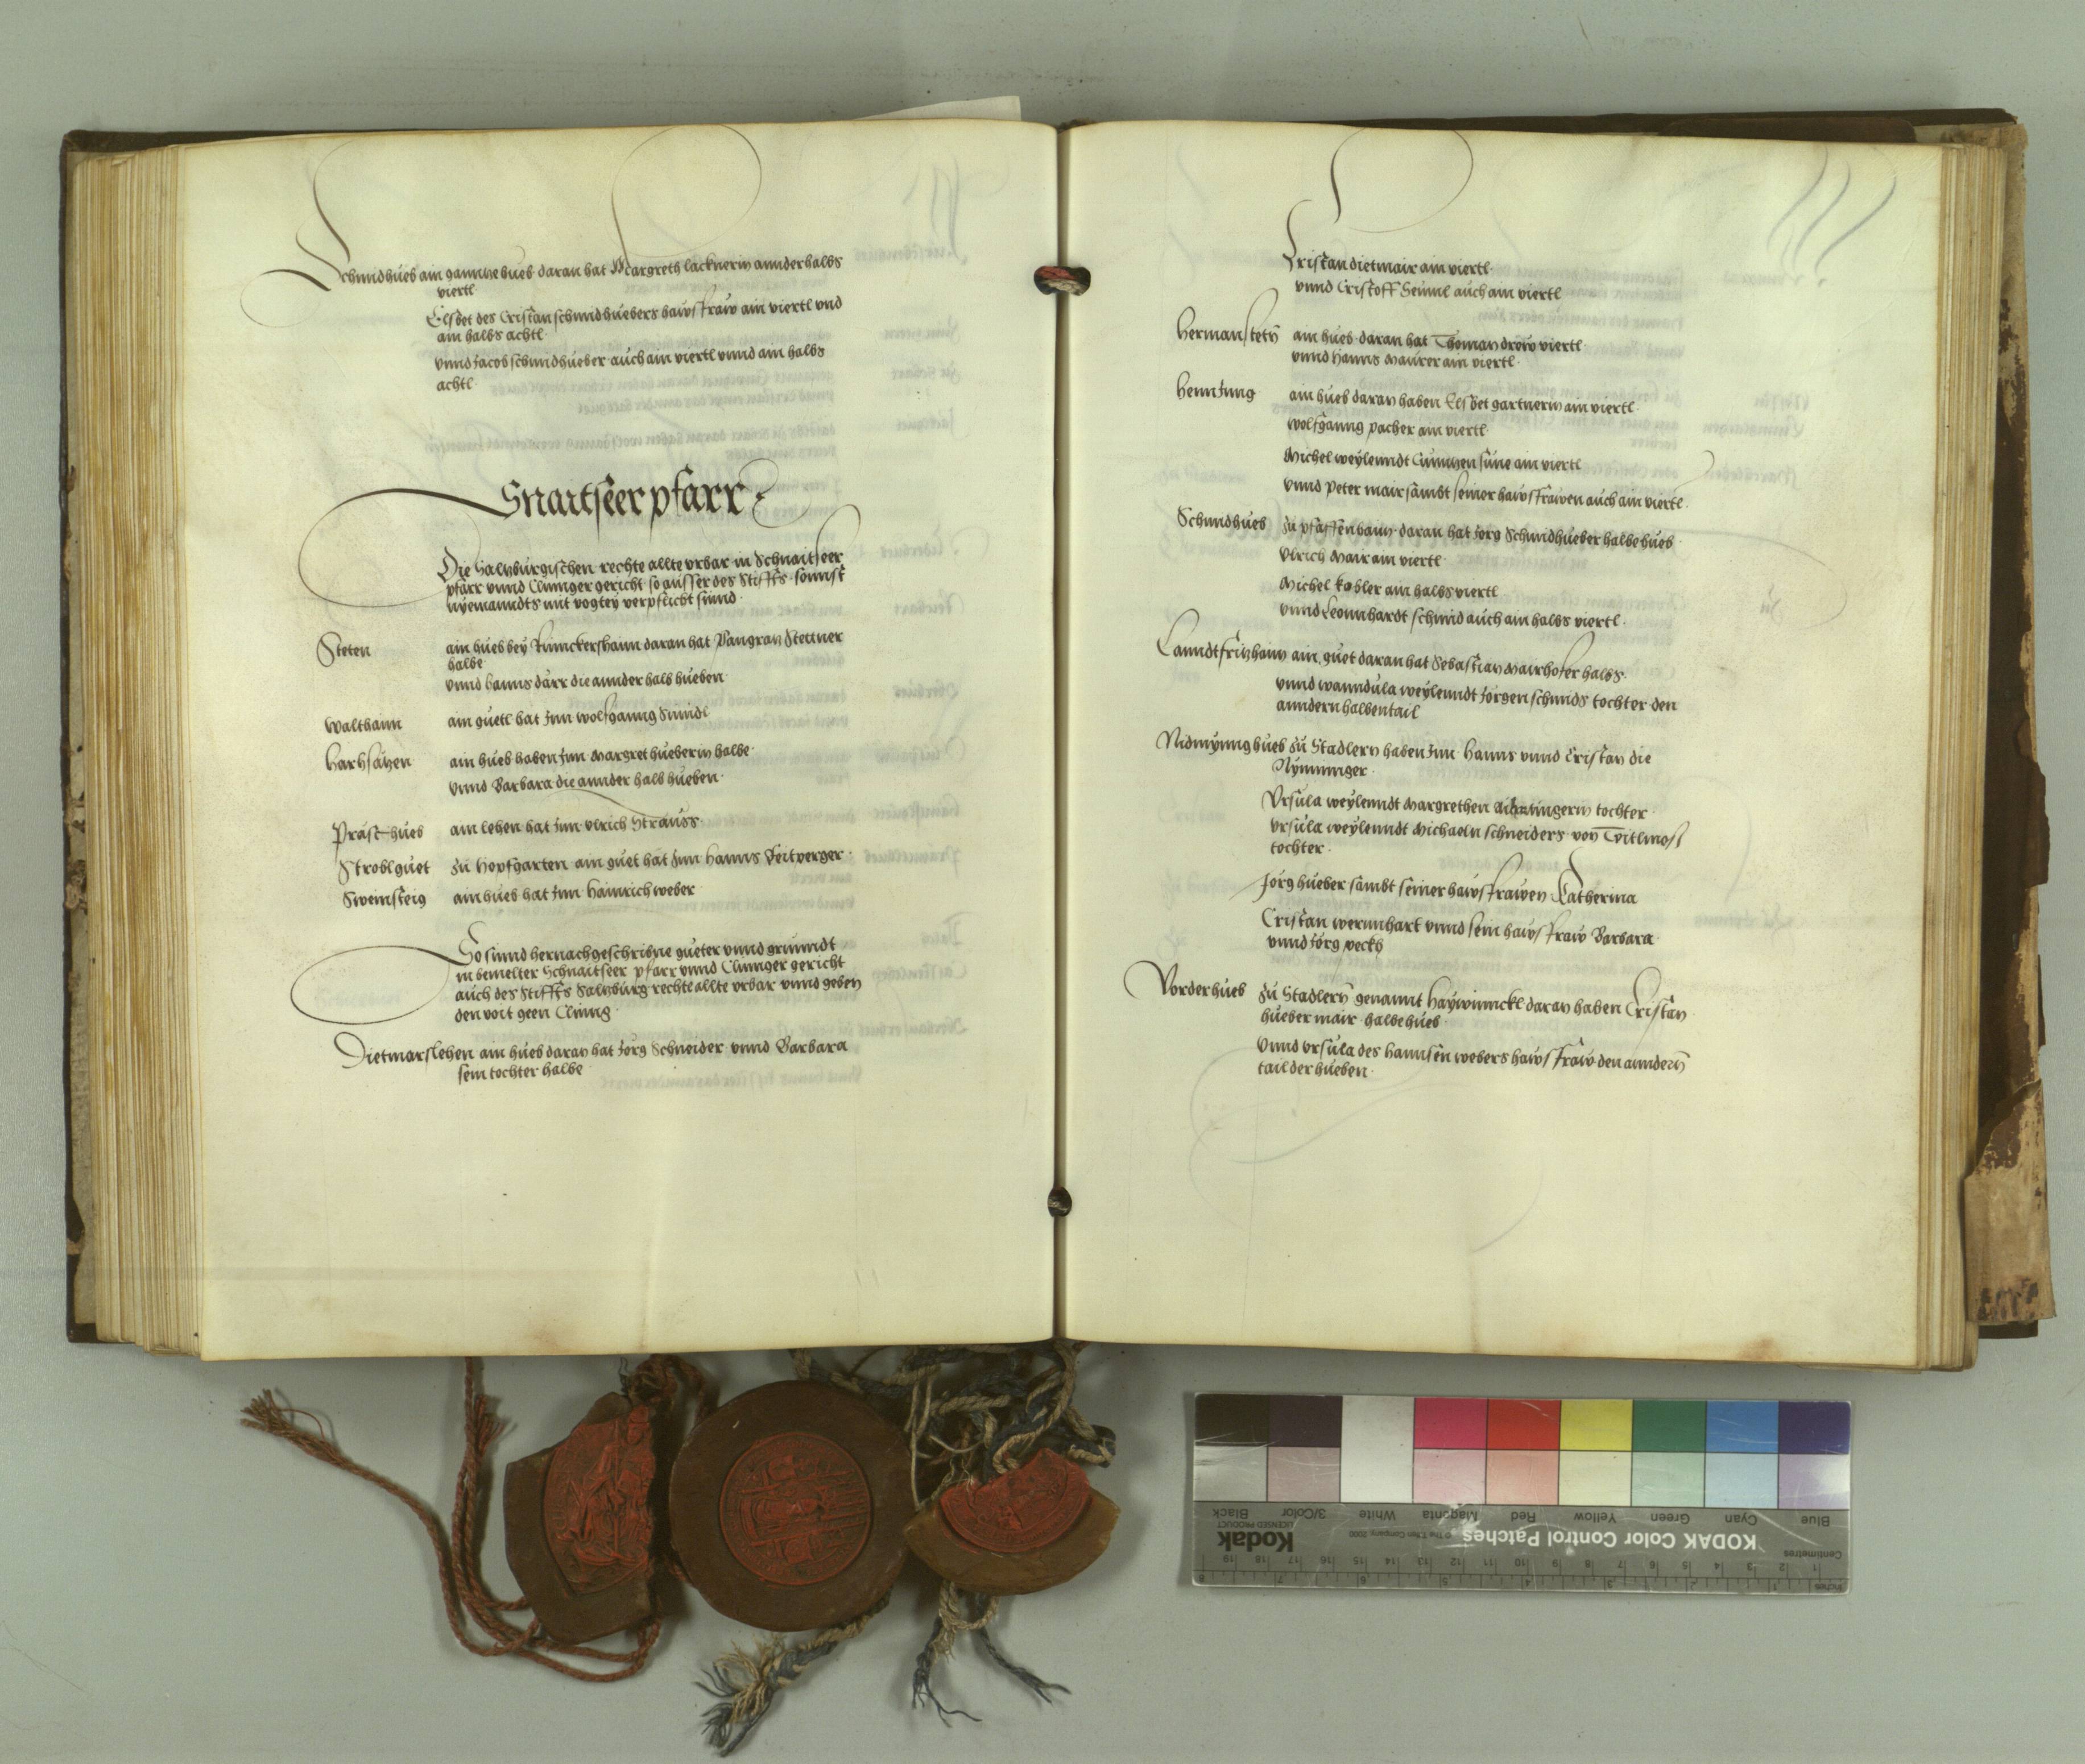 Schmidhueb ain ganntze hueb daran hat Margreth lacknerin annderhalbs
viertl
Elsbet des Cristan schmidhuebers hawsfraw ain viertl vnd
ain halbs achtl
vnnd Jacob schmidhueber auch ain viertl vnnd ain halbs
achtl
Snaitseer pfarr
Die Saltzburgischen rechte allte vrbar in Schnaitseer
pfarr vnnd Clinger gericht so ausser des Stiffts sonnst
nyemanndts mit vogtey verpflicht sinnd
Steten ain hueb bey daran hat Pangratz Stettner
halbe
vnnd hanns darr die annder halb hueben
Walthaim ain guetl hat Inn wolfganng Smidl
Harhsätzen ain hueb haben Inn Margret hueberin halbe
vnnd Barbara die annder halb hueben
Präst-hueb ain lehen hat Inn vlrich Strauss
Stroblguet zu Hopfgarten ain guet hat Inn hanns Feitperger
Sweinsteig ain hueb hat Inn Hainrich weber
So sinnd hernachgeschribne gueter vnnd grunndt
in bemelter Schnaitseer pfarr vnnd Clinger gericht
auch des Stiffts Saltzburg rechte allte vrbar vnnd geben
den voit geen Cling
Dietmarslehen ain hueb daran hat Jorg Schneider vnnd Barbara
sein tochter halbe
Cristan dietmair ain viertl
vnnd Cristoff Seuml auch ain viertl
Hermanstetn ain hueb daran hat Thoman drew viertl
vnnd Hanns Maurer ain viertl
HennJung ain hueb daran haben Elsbet gartnerin ain viertl
wolfganng pacher ain viertl
Michel weylenndt Cuntzen sune ain viertl
vnnd Peter mair sambt seiner hawsfrawen auch ain viertl
Schmidhueb zu pfaffenham daran hat Jorg Schmidhueber halbe hueb
Vlrich Mair ain viertl
Michel kobler ain halbs viertl
vnnd Leonnhardt schmid auch ain halbs viertl
Lanndtfritzhaim ain guet daran hat Sebastian Mairhofer halbs
vnnd wanndula weylenndt Jorgen schmids tochter den
anndern halben tail
Nidmynnghueb zu Stadlern haben Inn Hanns vnnd Cristan die
Nyminger
Vrsula weylenndt Margrethen tochter
vrsula weylenndt Michaeln schneiders von Titlmos
tochter
Jorg hueber sambt seiner hawsfrawen Catherina
Cristan wernnhart vnnd sein hawsfraw Barbara
vnnd Jorg peckh
Vorderhueb zu Stadlern genannt Haywinnckl daran haben Cristan
hueber mair halbe hueb
vnnd vrsula des Hannsen webers hawsfraw den anndern
tail der hueben
KODAK Color Control Patches
Kodak
LICENSED PRODUCT
Blue Cyan Green Yellow Red Magenta White 3/Color Black
Centimetres
Inches